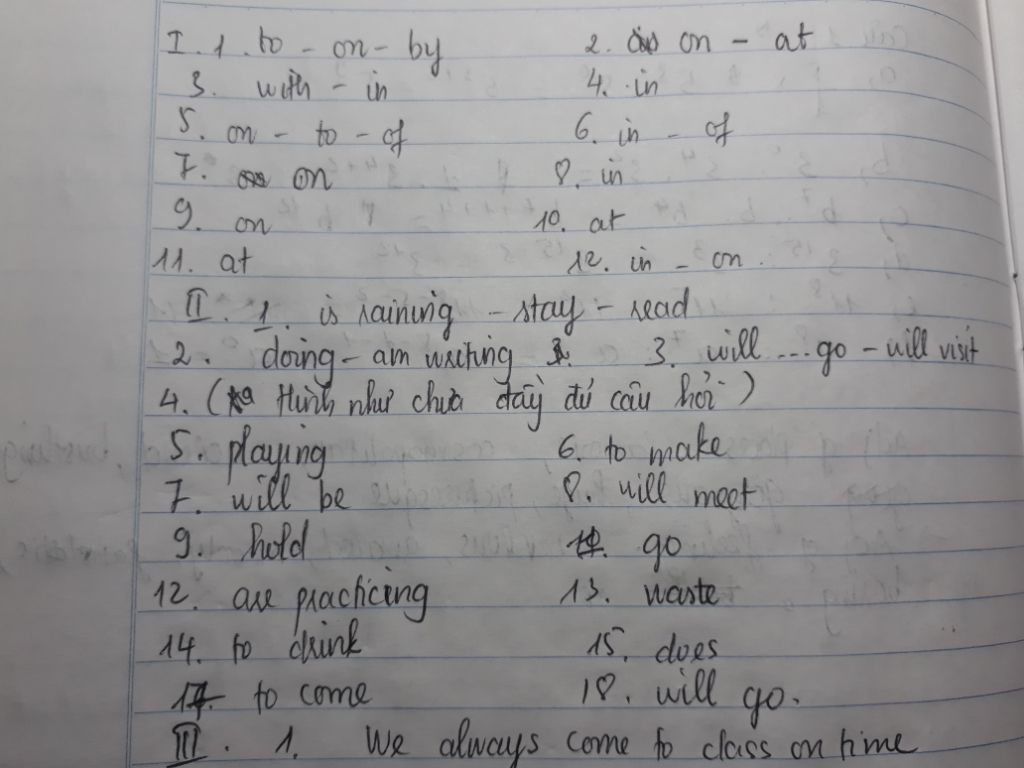 I. 1. to - on - by 2. on - at
3. with - in 4. in
5. on - to - of 6. in - of
7. on 8. in
9. on 10. at
11. at 12. in - on
II. 1. is raining - stay - read
2. doing - am writing 3. will ... go - will visit
4. (Hình như chưa đầy đủ câu hỏi)
5. playing 6. to make
7. will be 8. will meet
9. hold go
12. are practicing 13. waste
14. to drink 15. does
17. to come 18. will go.
III. 1. We always come to class on time